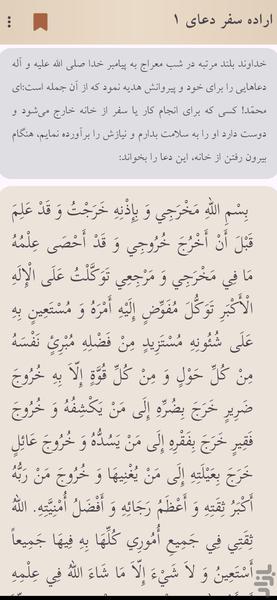 اراده سفر دعای ۱
خداوند بلند مرتبه در شب معراج به پیامبر خدا صلی الله علیه و آله
دعاهایی را برای خود و پیروانش هدیه نمود که از آن جمله است:ای
محمّد! کسی که برای انجام کار یا سفر از خانه خارج می‌شود و
دوست دارد او را به سلامت بدارم و نیازش را برآورده نمایم، هنگام
بیرون رفتن از خانه، این دعا را بخواند:
بِسْمِ اللهِ مَخْرَجِي وَ بِإِذْنِهِ خَرَجْتُ وَ قَدْ عَلِمَ
قَبْلَ أَنْ أَخْرُجَ خُرُوجِي وَ قَدْ أَحْصَى عِلْمُهُ
مَا فِي مَخْرَجِي وَ مَرْجِعِي تَوَكَّلْتُ عَلَى الْإِلَهِ
الْأَكْبَرِ تَوَكُّلَ مُفَوِّضٍ إِلَيْهِ أَمْرَهُ وَ مُسْتَعِينٍ بِهِ
عَلَى شُئُونِهِ مُسْتَزِيدٍ مِنْ فَضْلِهِ مُبْرِئٍ نَفْسَهُ
مِنْ كُلِّ حَوْلٍ وَ مِنْ كُلِّ قُوَّةٍ إِلَّا بِهِ خُرُوجَ
ضَرِيرٍ خَرَجَ بِضُرِّهِ إِلَى مَنْ يَكْشِفُهُ وَ خُرُوجَ
فَقِيرٍ خَرَجَ بِفَقْرِهِ إِلَى مَنْ يَسُدُّهُ وَ خُرُوجَ عَائِلٍ
خَرَجَ بِعَيْلَتِهِ إِلَى مَنْ يُغْنِيهَا وَ خُرُوجَ مَنْ رَبُّهُ
أَكْبَرُ ثِقَتِهِ وَ أَعْظَمُ رَجَائِهِ وَ أَفْضَلُ أُمْنِيَّتِهِ. اللهُ
ثِقَتِي فِي جَمِيعِ أُمُورِي كُلِّهَا بِهِ فِيهَا جَمِيعاً
أَسْتَعِينُ وَ لَا شَيْءَ إِلَّا مَا شَاءَ اللهُ فِي عِلْمِهِ
بازار